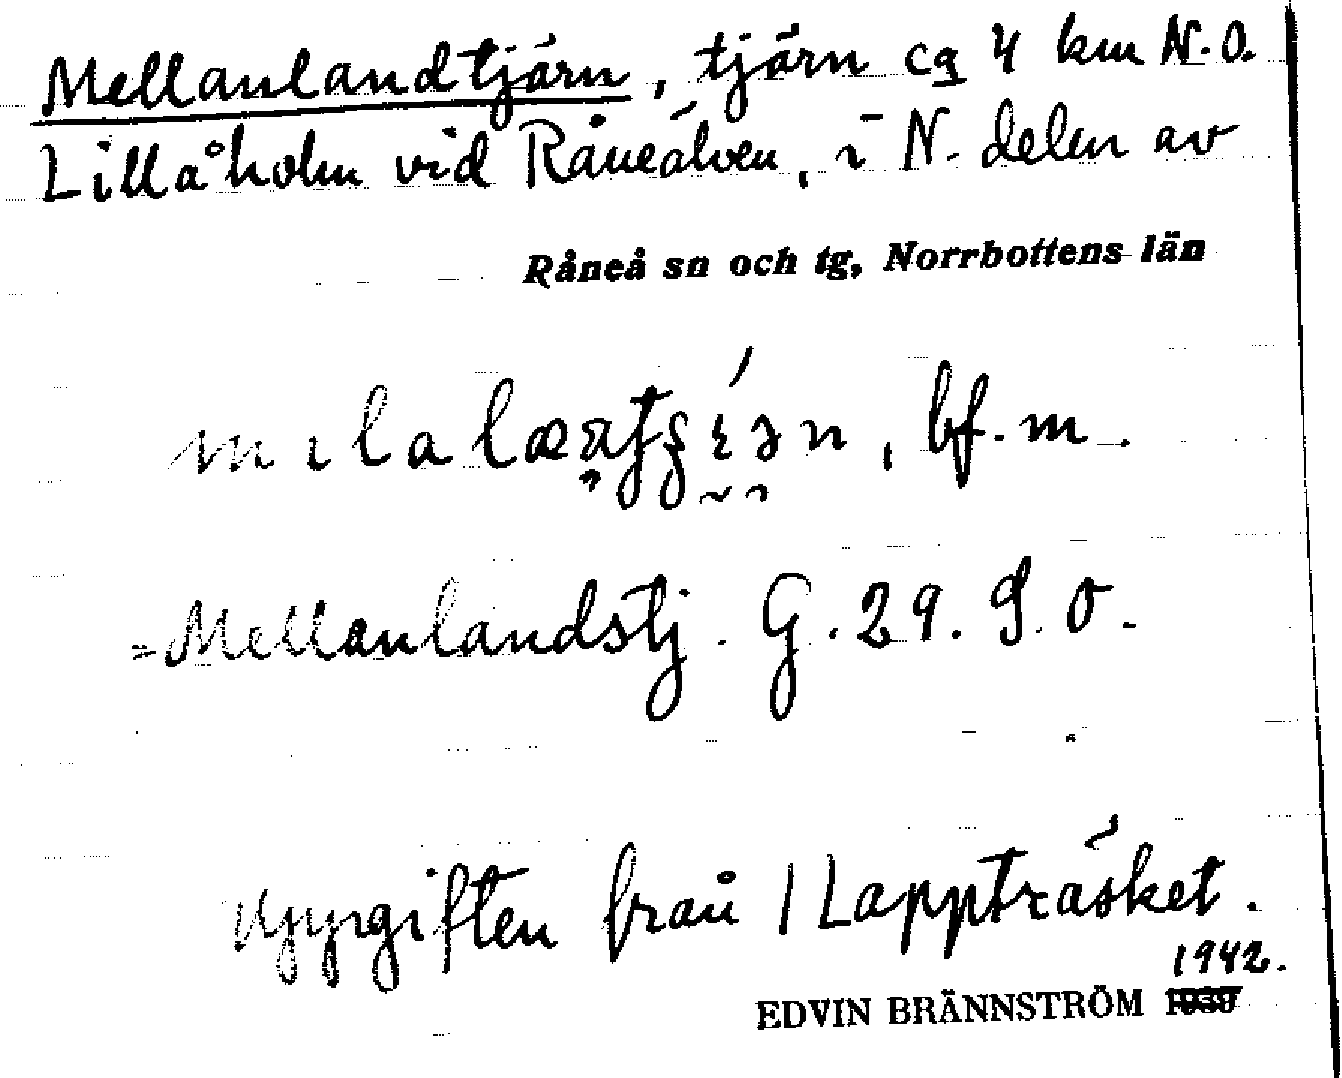 Mellanlandtjärn, tjärn ca 4 km N.O.
Lillåholm vid Råneälven, i N. delen av
Råneå sn och tg, Norrbottens län
bf. m.
=Mellanlandstj. G. 29. S.O.
Uppgiften från 1 Lappträsket.
1942.
EDVIN BRÄNNSTRÖM 1939